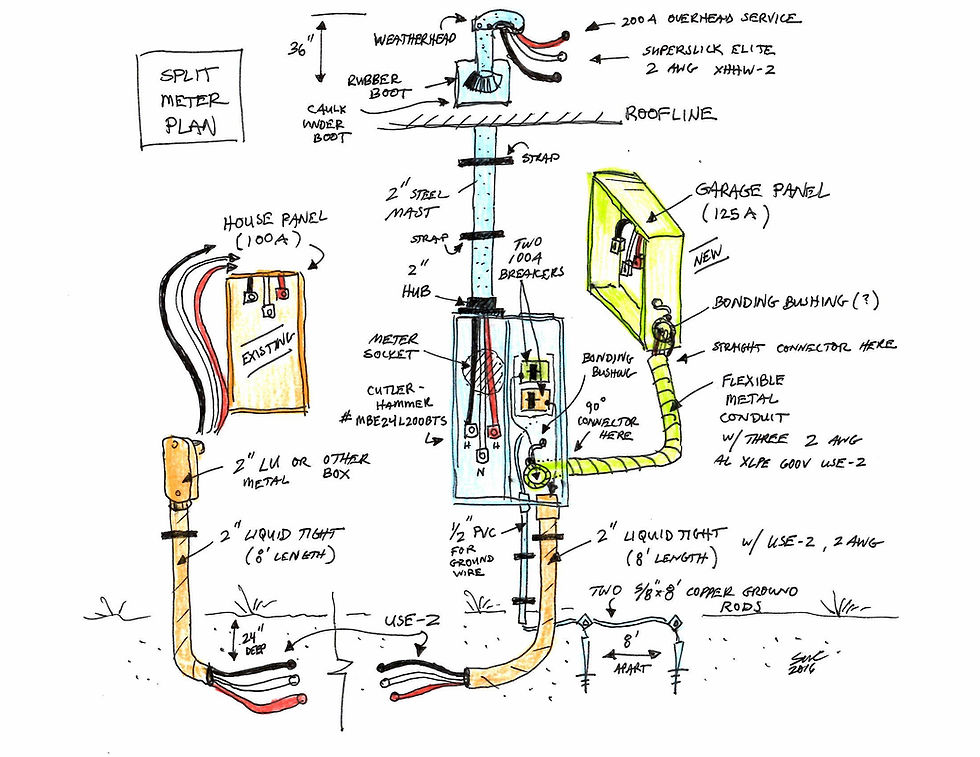 SPLIT
METER
PLAN
36"
WEATHERHEAD
200A OVERHEAD SERVICE
SUPERSLICK ELITE
2 AWG XHHW-2
RUBBER
BOOT
CAULK
UNDER
BOOT
ROOFLINE
STRAP
2" STEEL
MAST
STRAP
2"
HUB
TWO
100A
BREAKERS
GARAGE PANEL
(125A)
NEW
HOUSE PANEL
(100A)
EXISTING
METER
SOCKET
CUTLER-
HAMMER
#MBE24L200BTS
H
N
H
BONDING
BUSHING
90°
CONNECTOR
HERE
BONDING BUSHING (?)
STRAIGHT CONNECTOR HERE
FLEXIBLE
METAL
CONDUIT
W/ THREE 2 AWG
AL XLPE 600V USE-2
2" LU OR OTHER
METAL BOX
2" LIQUID TIGHT
(8' LENGTH)
1/2" PVC
FOR
GROUND
WIRE
2" LIQUID TIGHT
(8' LENGTH)
W/ USE-2, 2 AWG
TWO 5/8"x8' COPPER GROUND
RODS
24"
DEEP
USE-2
8'
APART
2016